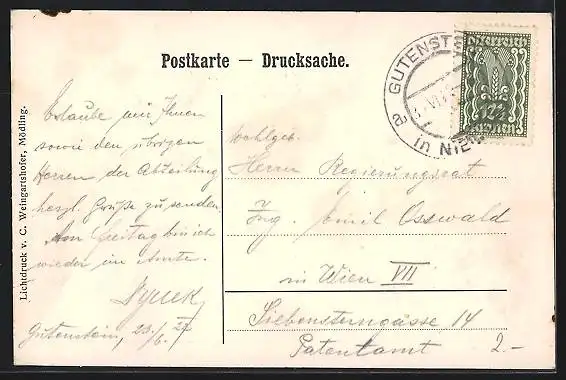 Postkarte — Drucksache.
GUTENSTE
in NIED
a
VI
Österreich
Lichtdruck v. C. Weingartshofer, Mödling.
Erlaube mir Ihnen
sowie den übrigen
Herren der Abteilung
herzl. Grüße zu senden.
Am Freitag bin ich
wieder im Amte.
Gutenstein, 20./6.
Wohlgeb.
Herrn Regierungsrat
Ing. Emil Osswald
in Wien VII
Siebensterngasse 14
Patentamt 2.-